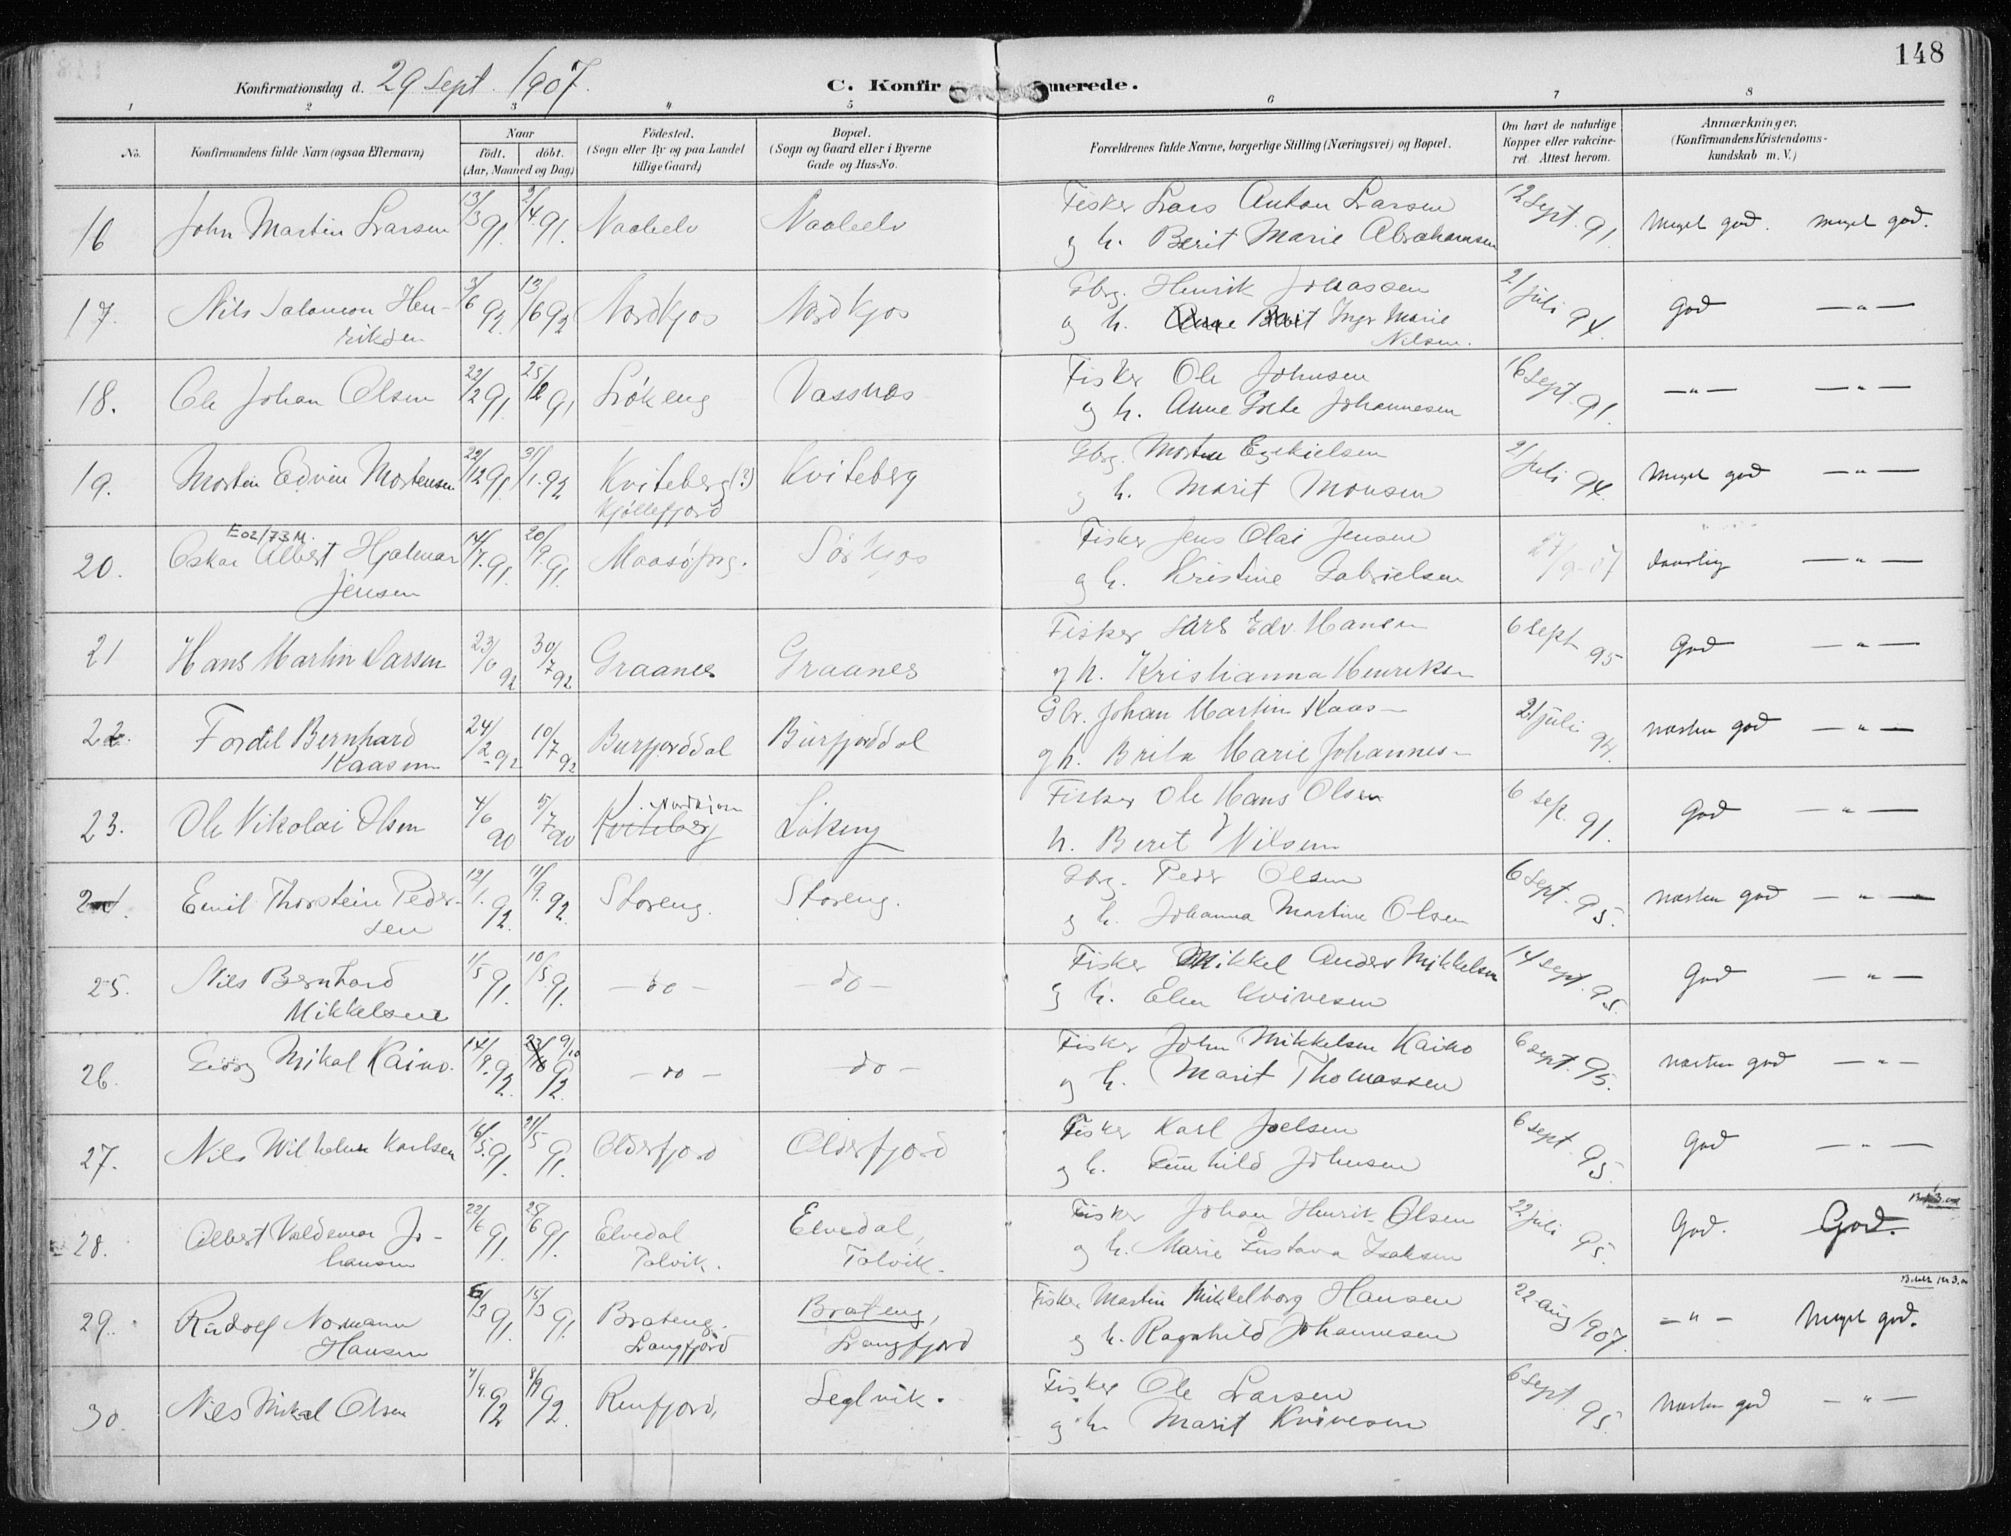 148
Konfirmationsdag d. 29 Sept. 1907.
C. Konfirmerede.
1 2 3 4 5 6 7 8
No.
Konfirmandens fulde Navn (ogsaa Efternavn)
Naar
födt. döbt.
(Aar, Maaned og Dag)
Födested.
(Sogn eller By og paa Landet
tillige Gaard)
Bopæl.
(Sogn og Gaard eller i Byerne
Gade og Hus-No.
Forældrenes fulde Navne, borgerlige Stilling (Næringsvei) og Bopæl.
Om havt de naturlige
Kopper eller vakcine-
ret. Attest herom.
Anmærkninger.
(Konfirmandens Kristendoms-
kundskab m. V.)
16 John Martin Larsen 13/3 91. 2/4 91. Fisker Lars Anton Larsen 12 Sept. 91. Meget god. Meget god.
og h. Berit Marie Abrahamsen
17. Nils Salamon Hen- 3/6 92. 13/6 92 Nordkjos Nordkjos Gbrg. Henrik Johassen 21 juli 94. God — " —
riksen og h. Inger Marie
Nilsen.
18. Ole Johan Olsen 22/12 91. 25/12 91 Lökeng Vassnes Fisker Ole Johnsen 16 Sept. 91. — " — — " —
og h. Anne Grete Johannesen
19. Morten Edvin Mortensen 22/12 91. 31/1. 92 Kviteberg (?) Kviteberg Gbrg. Morten Ezekielsen 21 juli 94. Meget god — " —
Kjöllefjord og h. Marit Monsen
E02/73 M.
20. Oskar Albert Hjalmar 14/7. 91. 20/9. 91. Maasö prg. Sörkjos Fisker Jens Olai Jensen 27/9-07 daarlig — " —
Jensen og h. Kristine Gabrielsen
21 Hans Martin Larsen 23/6 92 30/7 92 Graanes Graanes Fisker Lars Edv. Hansen 6 sept 95 God — " —
og h. Kristianna Henriksen
22. Fordel Bernhard 24/2 - 92 10/7 92 Burfjorddal Burfjorddal Gbr. Johan Martin Kaas 21 juli 94. næsten god — " —
Kaasen og h. Brita Marie Johannes
23. Ole Nikolai Olsen 4/6 90 15/7 90 Kviteberg Lökeng Fisker Ole Hans Olsen 6 sep. 91. God — " —
h. Berit Nilsen
24. Emil Thorstein Peder- 12/1. 92. 11/9. 92. Storeng. Storeng. Gbrg. Peder Olsen 6 Sept. 95. næsten god — " —
sen og h. Johanna Martine Olsen
25. Nils Bernhard 11/5 91. 10/5 91. — do — — do — Fisker Mikkel Anders Mikkelsen 14 sept. 95. God — " —
Mikkelsen og h. Elen Kvivesen
26. Georg Mikal Kaino. 14/9. 92. 9/10 92. — do — — do — Fisker John Mikkelsen Kaino 6 sept. 95. næsten god — " —
og h. Marit Thomassen
27. Nils Wilhelm Karlsen 16/5. 91. 21/5 91. Olderfjord Olderfjord Fisker Karl Joelsen 6 sept 95. God — " —
og h. Gunhild Johnsen
28. Albert Valdemar Jo- 22/6 91. 28/6 91. Elvedal Elvedal, Fisker Johan Henrik Olsen 22 juli 95. God. God.
hansen Talvik. Talvik. og h. Marie Gustava Isaksen
29. Rudolf Normann 6/3 91. 15/3 91. Brateng. Brateng, Fisker Martin Mikkelborg Hansen 22 aug 1907. — " — Meget god.
Hansen Langfjord Langfjord og h. Ragnhild Johannesen
30. Nils Mikal Olsen 7/9. 92 92. Reinfjord, Seglvik. Fisker Ole Larsen 6 Sept. 95. næsten god — " —
og h. Marit Kvivesen